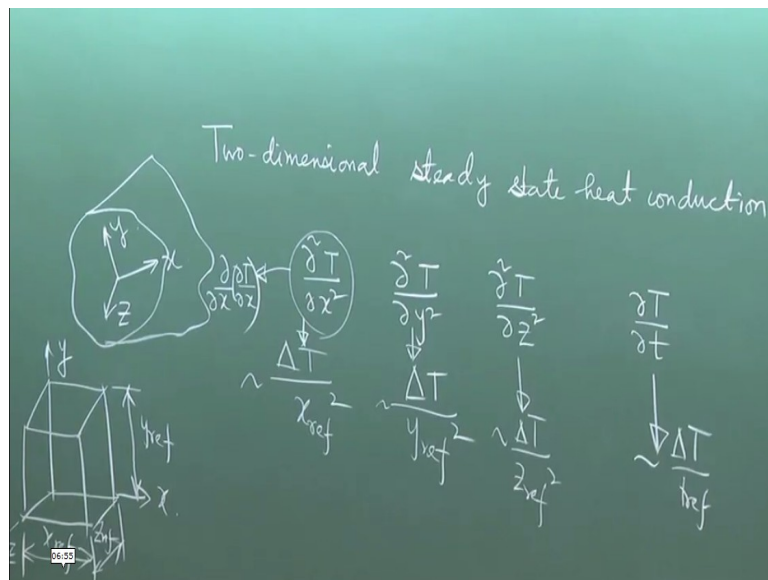 Two-dimensional steady state heat conduction
y
x
z
∂/∂x(∂T/∂x) ← ∂²T/∂x² ∂²T/∂y² ∂²T/∂z² ∂T/∂t
~ ΔT/x_ref² ~ ΔT/y_ref² ~ ΔT/z_ref² ~ ΔT/t_ref
y
y_ref
x
z x_ref z_ref
06:55